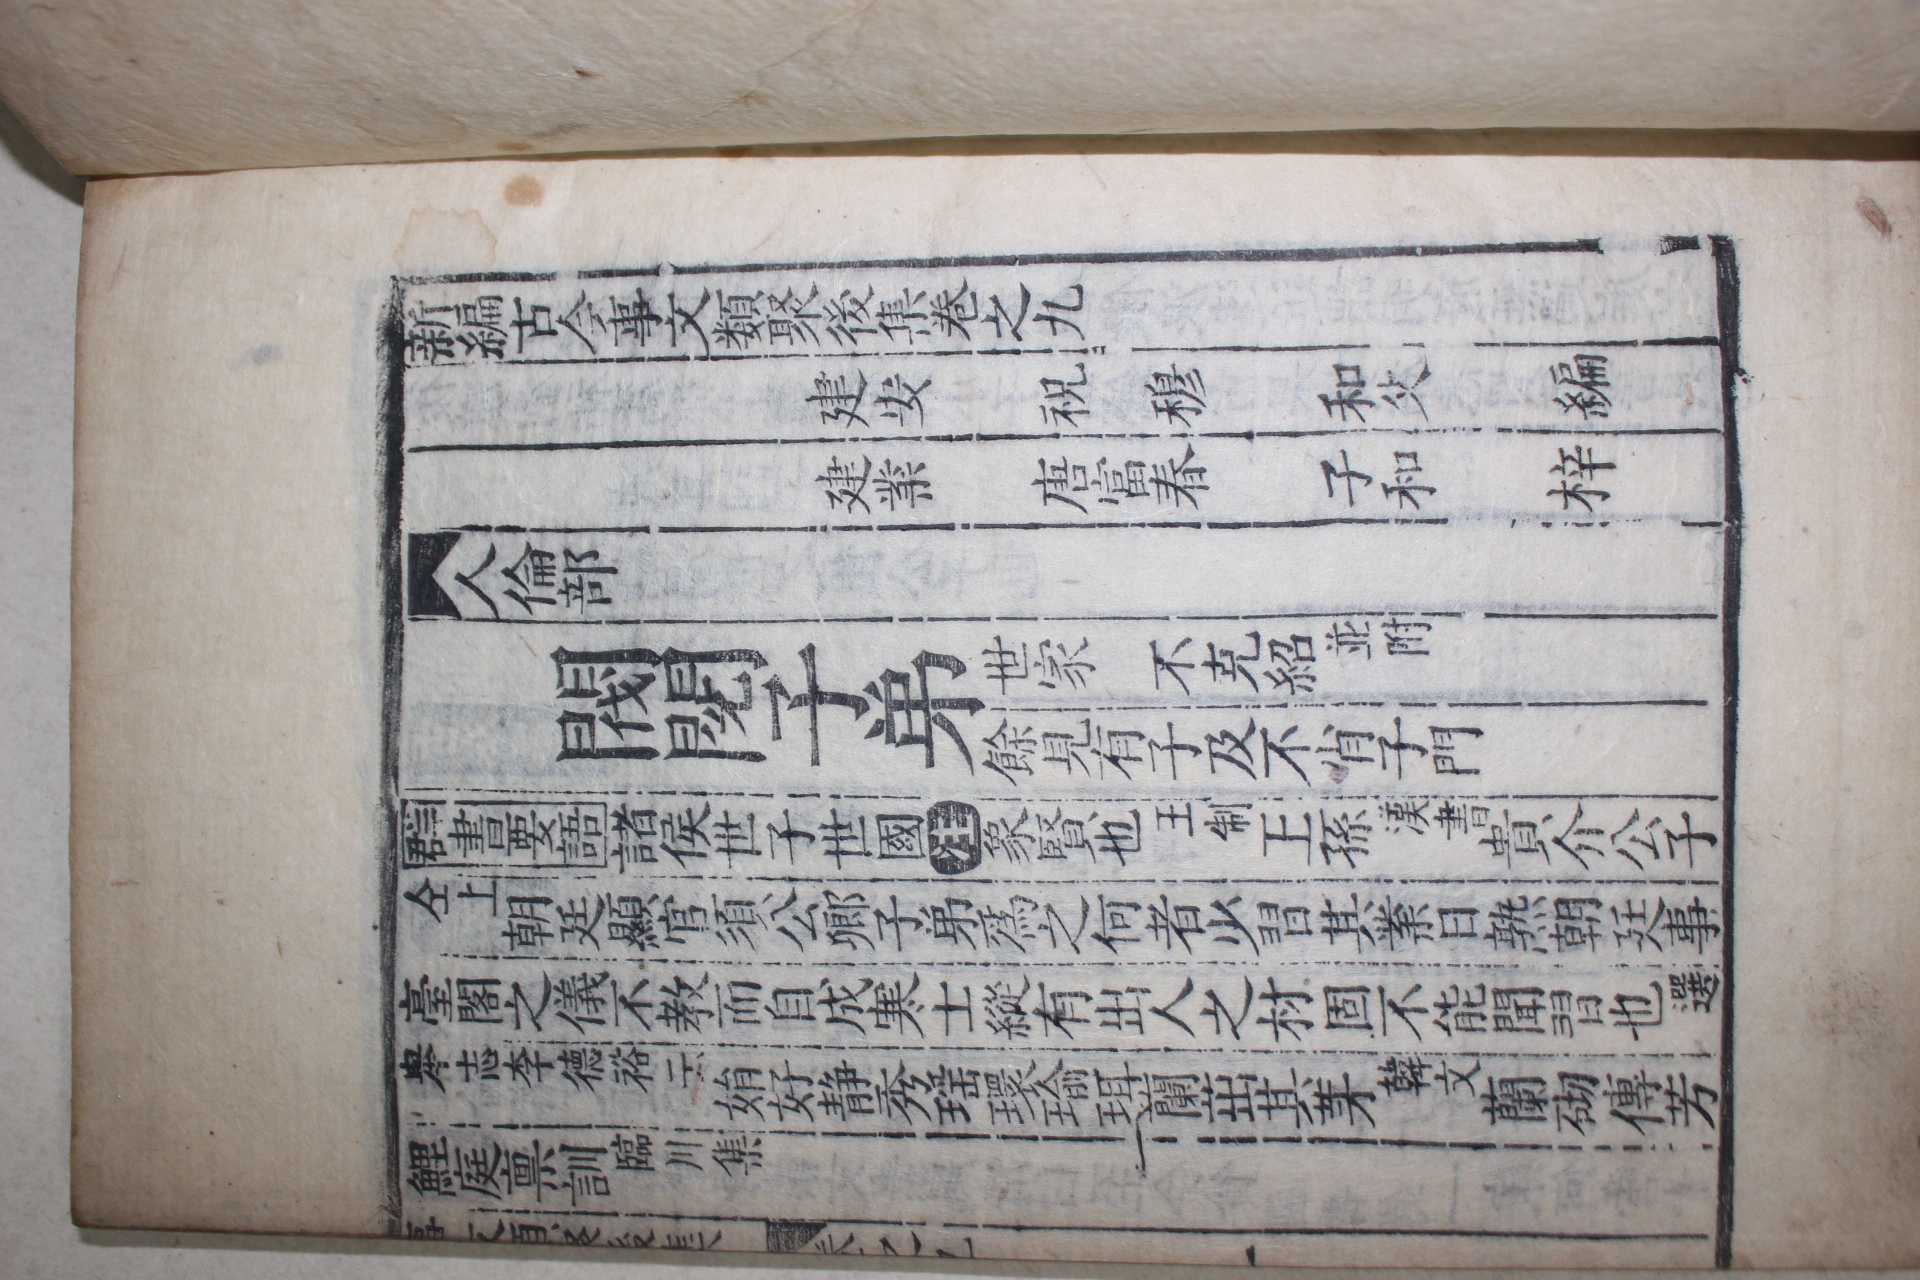 新編古今事文類聚後集卷之九
建安 祝穆 和父 編
建業 唐富春 子和 梓
人倫部
閥閱子弟 世家 不克紹並附
餘見有子及不肖子門
群書要語 諸侯世子世國 注 象賢也 王制 王孫 漢書 貴介公子
仝上 朝廷顯官須公卿子弟爲之何者少習其業目熟朝廷事
臺閣之儀不教而自成寒士縱有出人之材固不能閑習也 選
舉志李德裕云 姢好靜秀瑤環瑜珥蘭茁其芽 韓文 蘭砌傳芳
鯉庭稟訓 臨川集